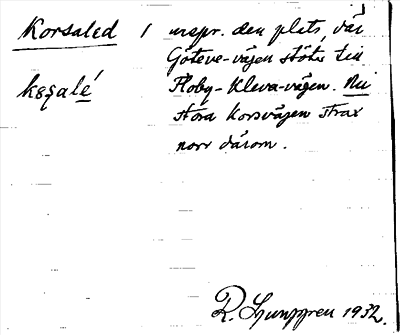 Korsaled / urspr. den plats, där
Göteve-vägen stöter till
kǫsalé Floby-Kleva-vägen. Nu
stora korsvägen strax
norr därom.
R. Ljunggren 1932.